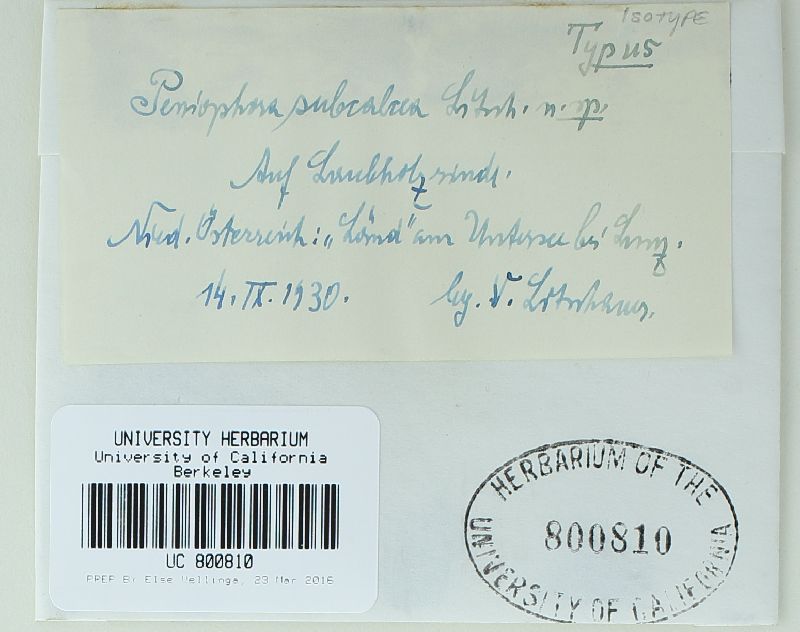 ISOTYPE
Typus
Peniophora subcalcea Litsch. n. sp.
Auf Laubholzrinde.
Nied. Österreich: „Länd" am Untersee bei Lunz.
14. IX. 1930. leg. V. Litschauer.
UNIVERSITY HERBARIUM
University of California
Berkeley
UC 800810
PREP By Else Vellinga, 23 Mar 2016
HERBARIUM OF THE
800810
UNIVERSITY OF CALIFORNIA